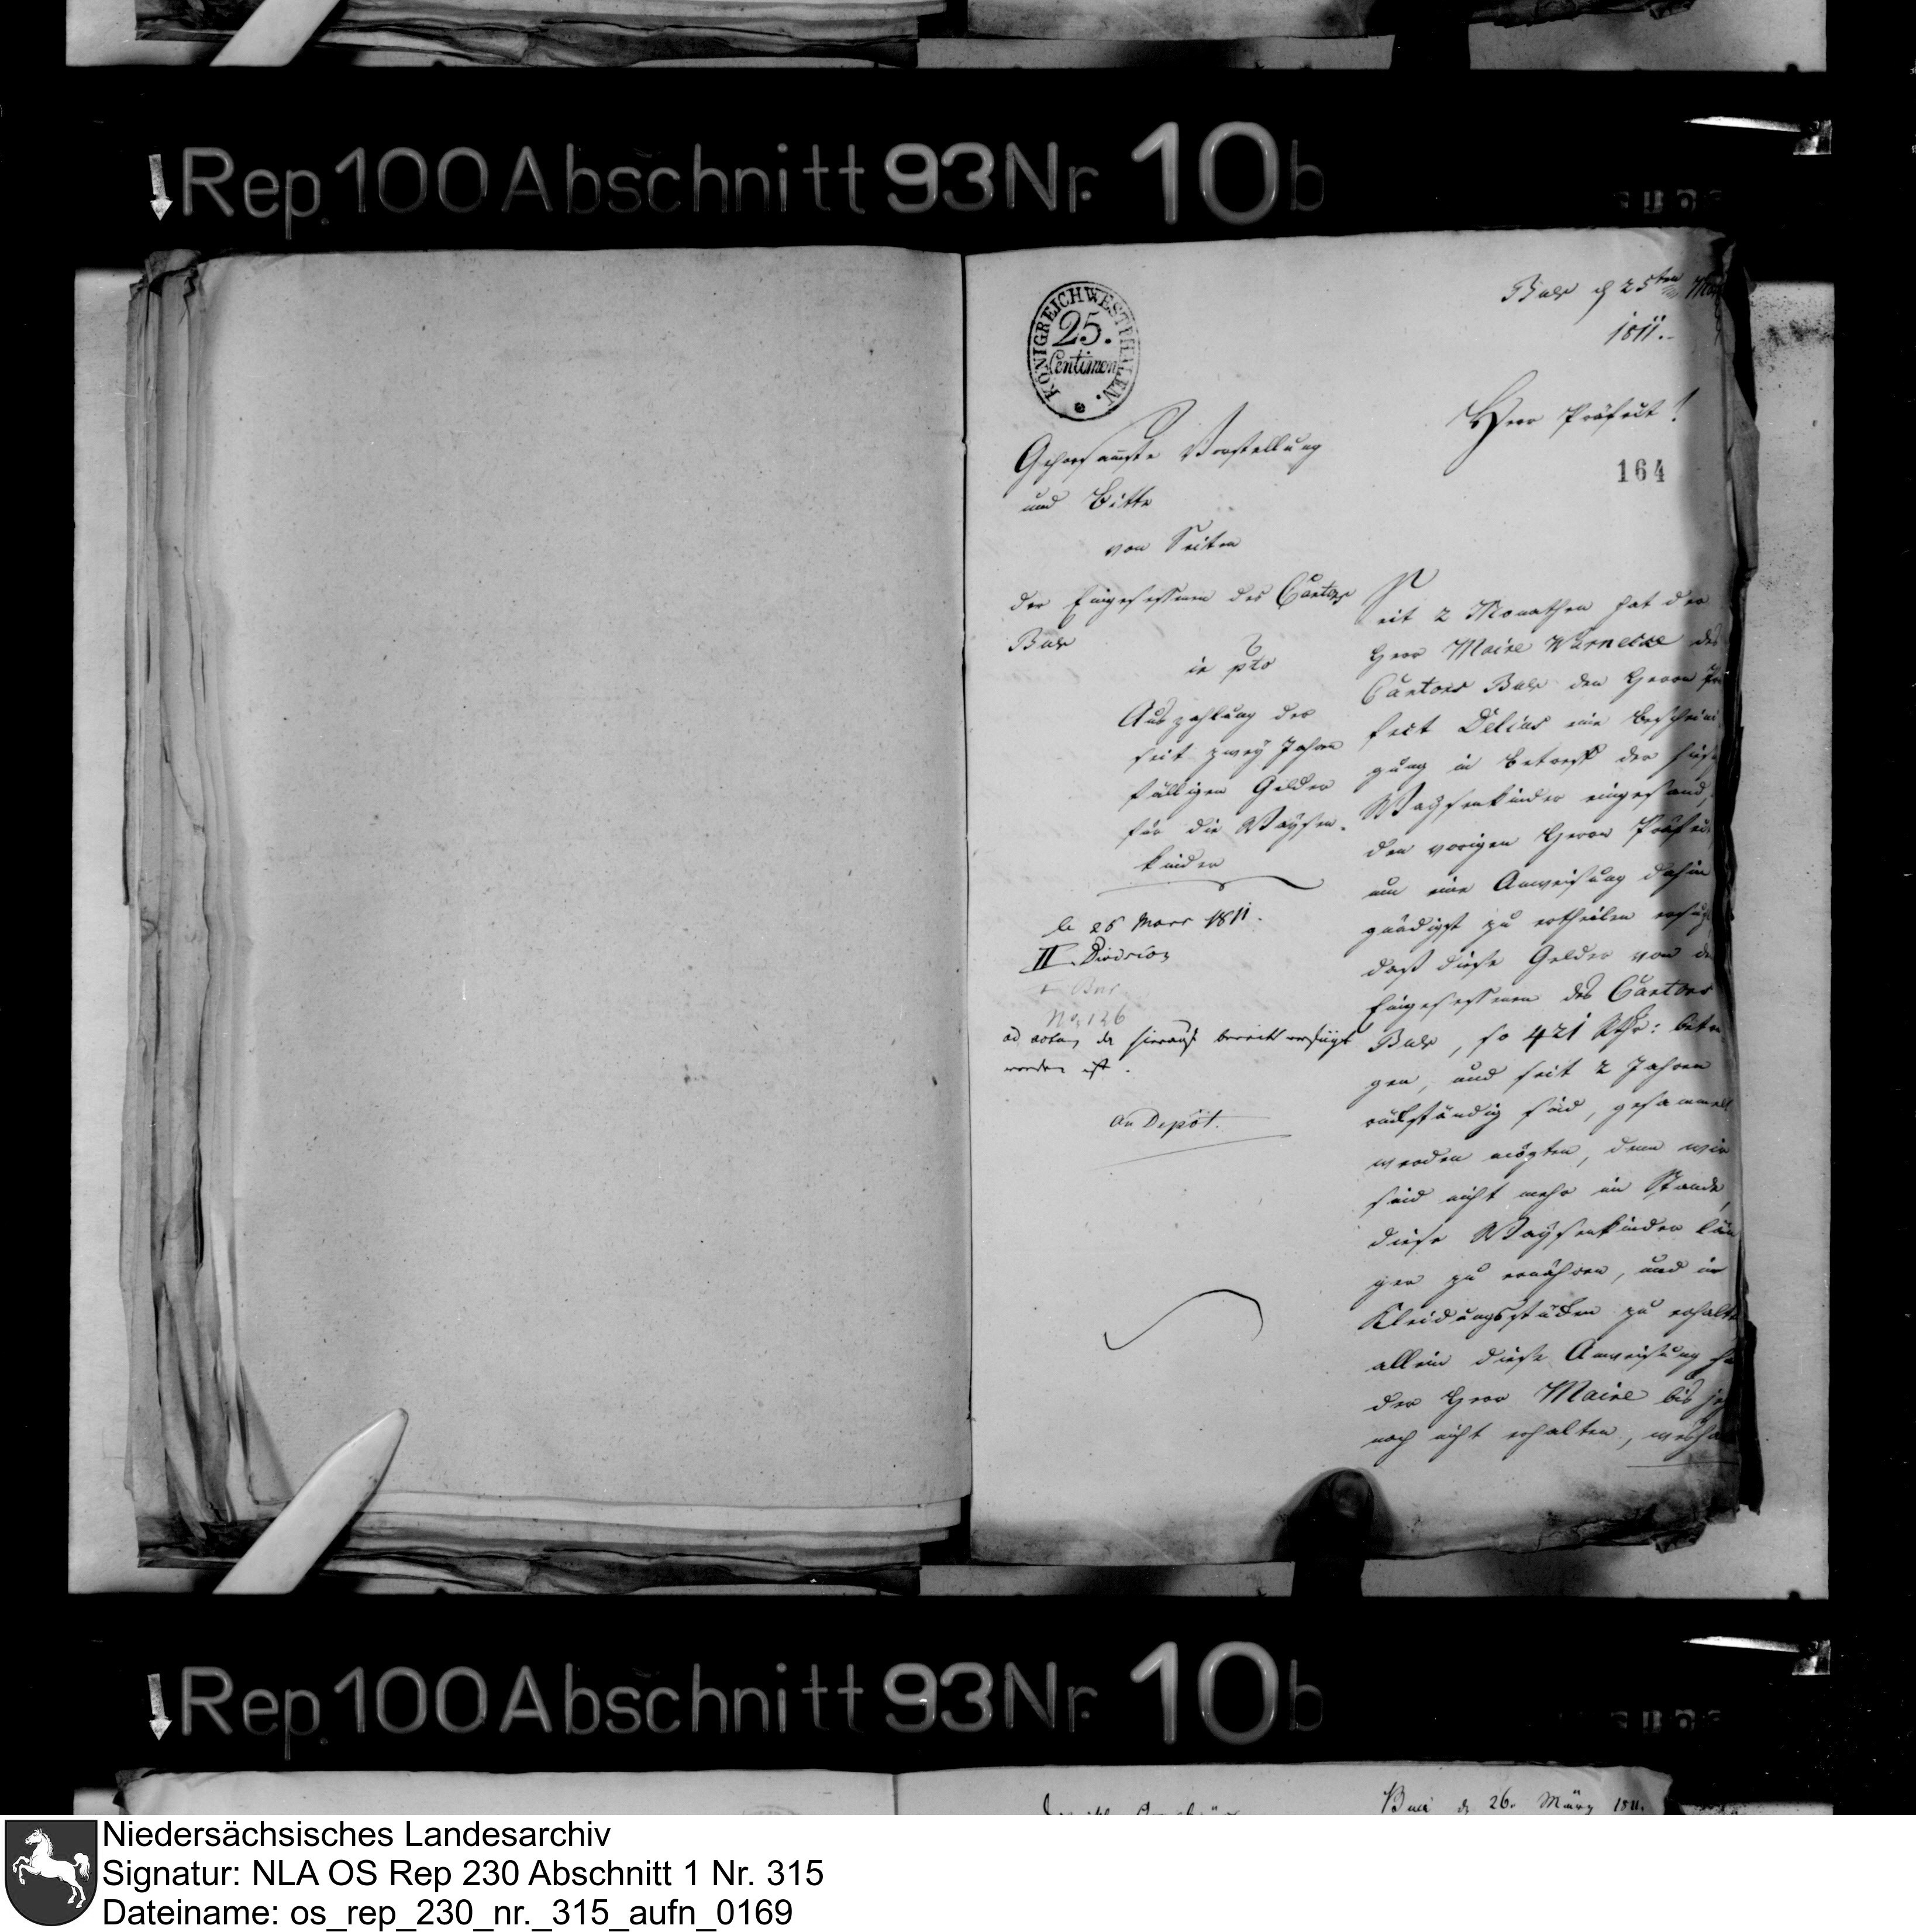 Rep. 100 Abschnitt 93 Nr. 10b
KÖNIGREICH WESTPHALEN.
25.
Centimen
Buer d 25ten
1811.
Herr Präfect!
164
Gehorsamste Vorstellung
und Bitte
von Seiten
der Eingesessenen des Cantons
Buer
in pto
Auszahlung der
seit zwey Jahren
fälligen Gelder
für die Waysen-
kinder
le 26 Mars 1811.
II Division
No. 126
ad acta, da hierauf bereits verfügt
worden ist.
au Depôt.
Seit 2 Monathen hat der
Herr Maire Warnecke des
Cantons Buer den Herrn Prä
fect Delius eine Bescheini
gung in Betreff der hies.
Waysenkinder eingesand,
den vorigen Herrn Präfect
um eine Anweisung dahin
gnädigst zu ertheilen ersucht
daß diese Gelder von den
Eingesessenen des Cantons
Buer, so 421 Rthr: betra
gen, und seit 2 Jahren
rückständig sind, gesammelt
werden mögten, denn wir
sind nicht mehr im Stande,
diese Waysenkinder län
ger zu ernähren, und in
Kleidungsstücken zu erhalten
allein diese Anweisung hat
der Herr Maire bis jetzt
noch nicht erhalten, weshalb
Rep. 100 Abschnitt 93 Nr. 10b
Buer d 26. März 1811.
Niedersächsisches Landesarchiv
Signatur: NLA OS Rep 230 Abschnitt 1 Nr. 315
Dateiname: os_rep_230_nr._315_aufn_0169